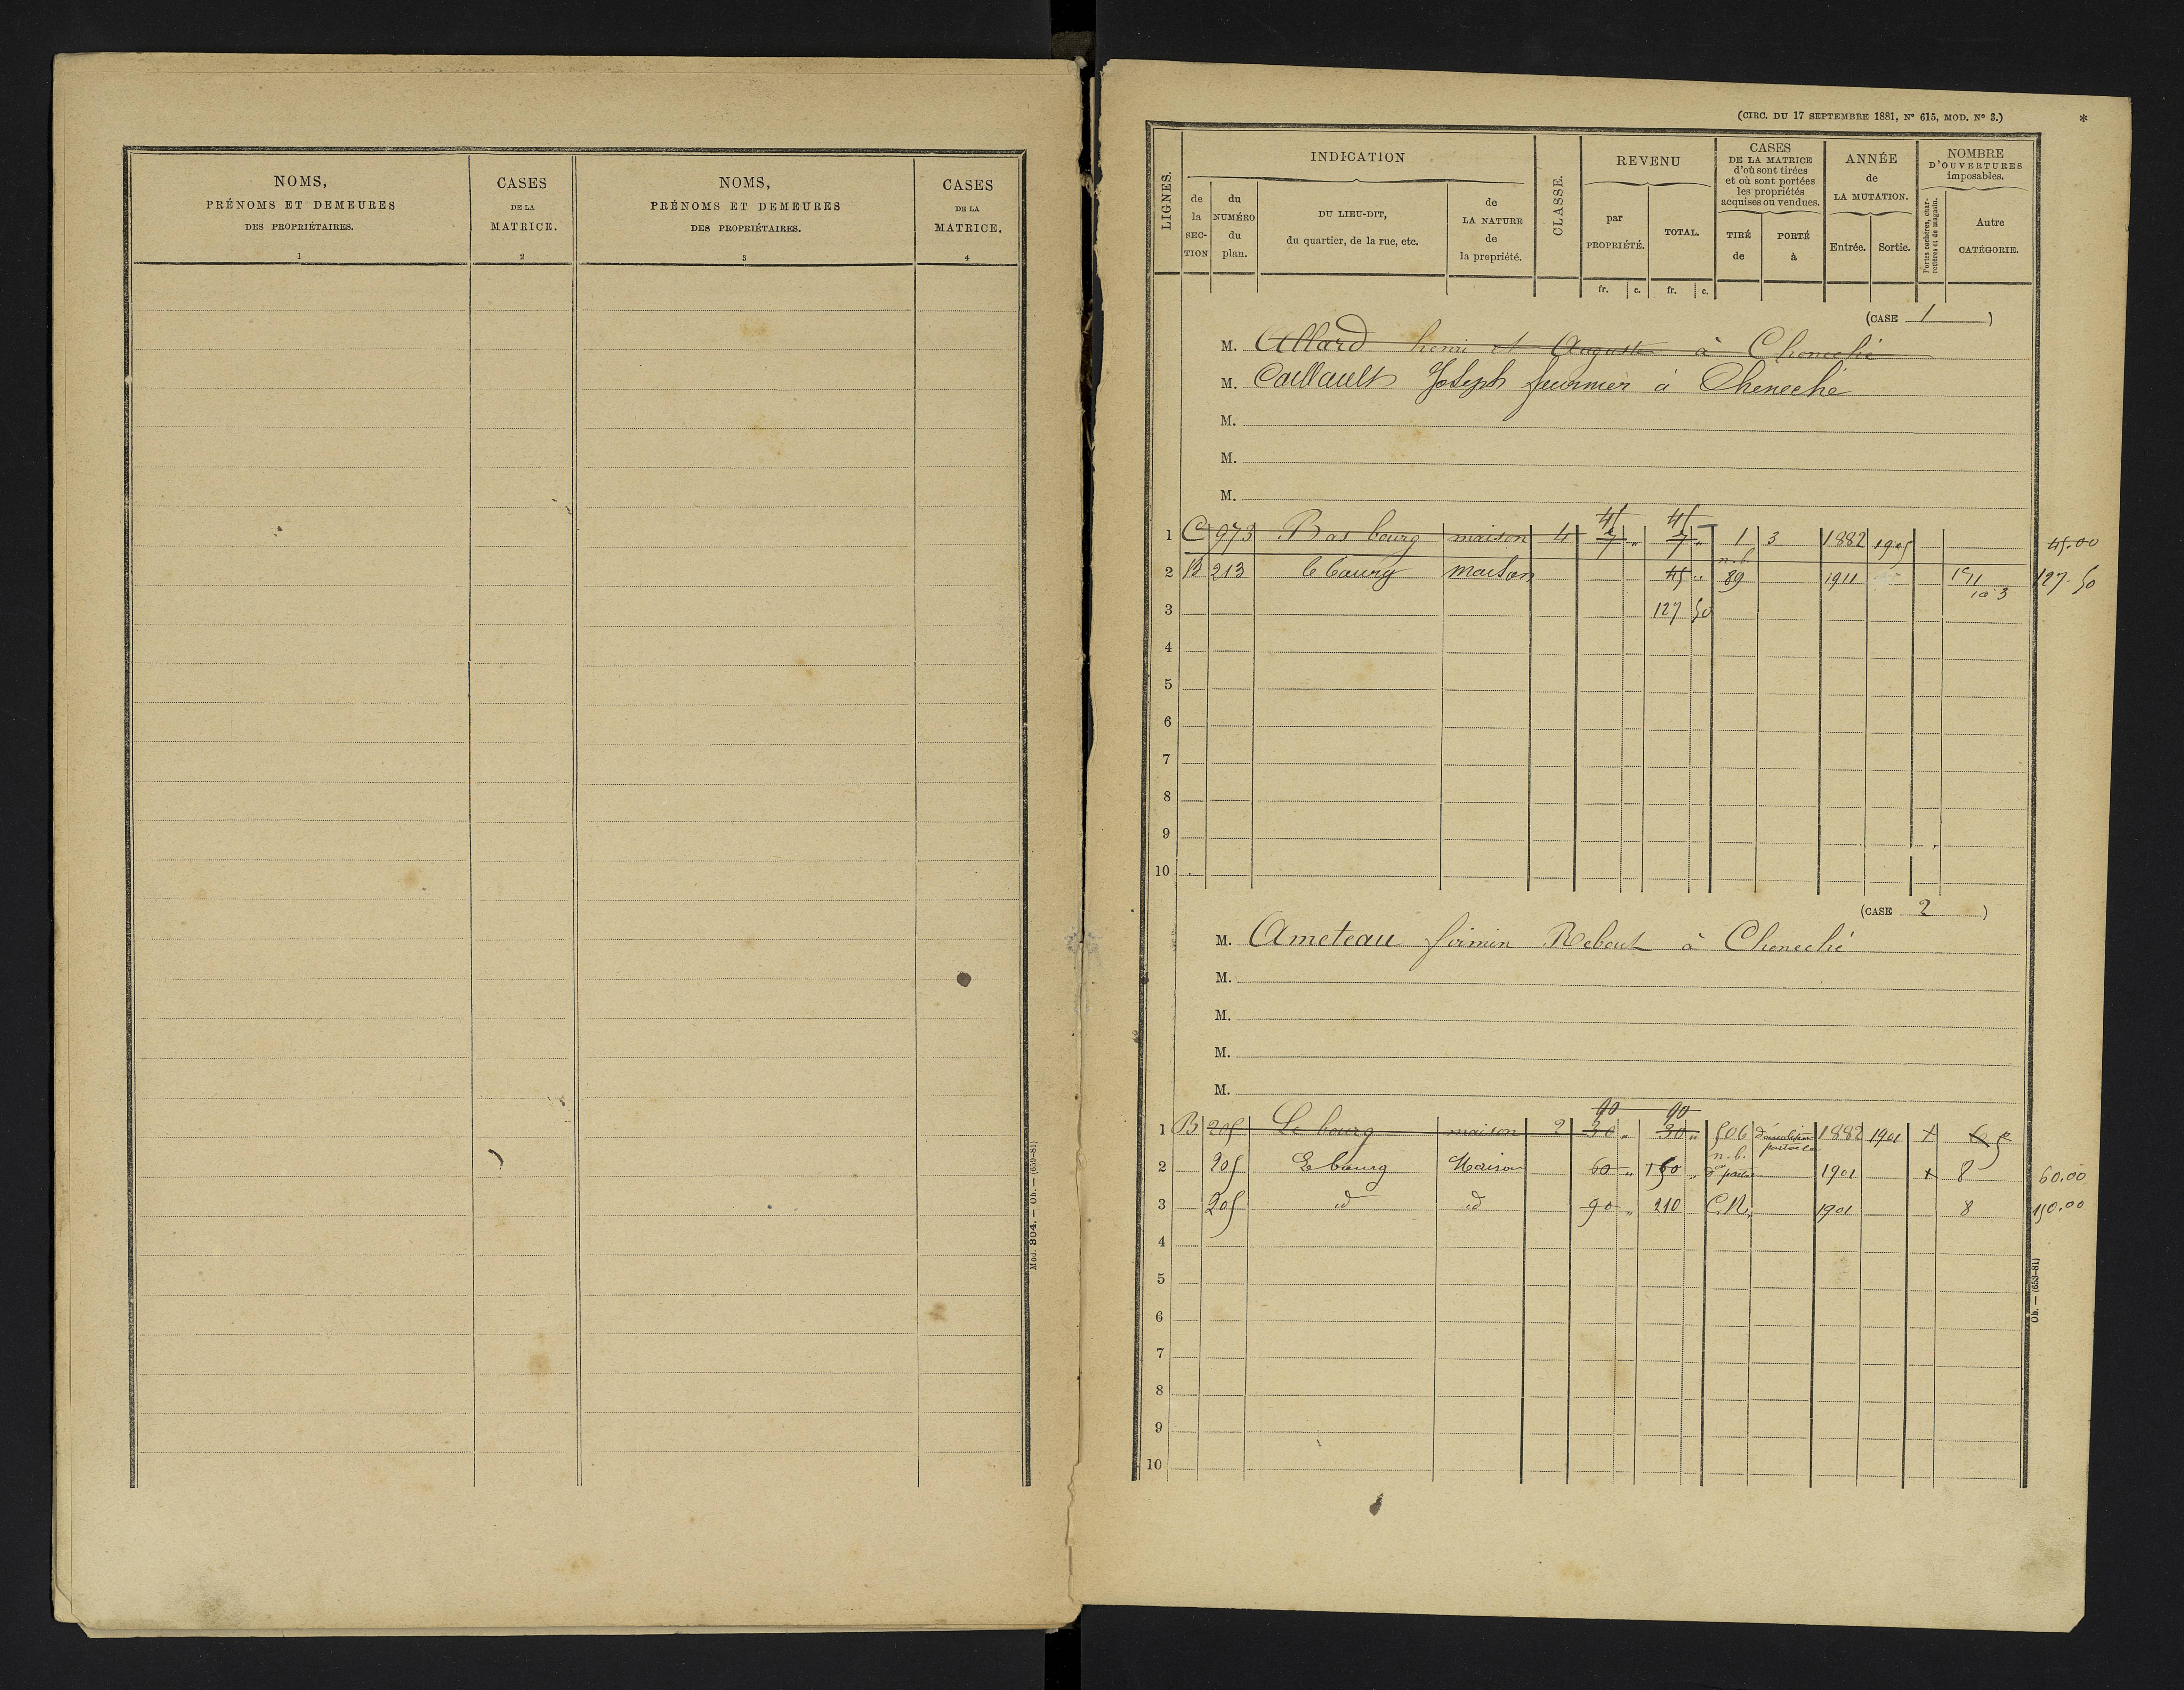 NOMS,
PRÉNOMS ET DEMEURES
DES PROPRIÉTAIRES.
1
CASES
DE LA
MATRICE.
2
NOMS,
PRÉNOMS ET DEMEURES
DES PROPRIÉTAIRES.
3
CASES
DE LA
MATRICE.
4
Mod. 304. — Ob. — (659-81)
(CIRC. DU 17 SEPTEMBRE 1881, N° 615, MOD. N° 3.)
*
LIGNES.
INDICATION
de la SECTION
du NUMÉRO du plan.
DU LIEU-DIT,
du quartier, de la rue, etc.
de LA NATURE de la propriété.
CLASSE.
REVENU
par PROPRIÉTÉ.
TOTAL.
fr. c. fr. c.
CASES
DE LA MATRICE
d'où sont tirées
et où sont portées
les propriétés
acquises ou vendues.
TIRÉ de
PORTÉ à
ANNÉE
de
LA MUTATION.
Entrée. Sortie.
NOMBRE
D'OUVERTURES
imposables.
Portes cochères, charretières et de magasin.
Autre CATÉGORIE.
(CASE 1)
M. Allard henri et Auguste à Cheneché
M. Caillault Joseph à Cheneché
M.
M.
M.
45 45
1 C 973 Bas bourg maison 4 7 " 7 " 1 3 1882 1905 45.00
n.b.
2 B 213 le bourg maison 45 " 89 1911 127.50
3 127 50
4
5
6
7
8
9
10
(CASE 2)
M. Ameteau firmin Rebout à Cheneché
M.
M.
M.
M.
90 90
1 B 205 Le bourg maison 2 30 " 30 " 506 démolition partielle 1882 1901
n.b.
2 205 Le bourg Maison 60 " 150 " 1901 8 60.00
3 205 id id 90 " 210 C.N. 1901 8 150.00
4
5
6
7
8
9
10
Ob. — (653-81)